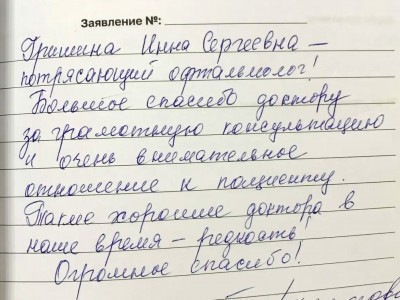 Заявление №:
Гришина Инна Сергеевна –
потрясающий офтальмолог!
Большое спасибо доктору
за грамотную консультацию
и очень внимательное
отношение к пациенту.
Такие хорошие доктора в
наше время – редкость!
Огромное спасибо!